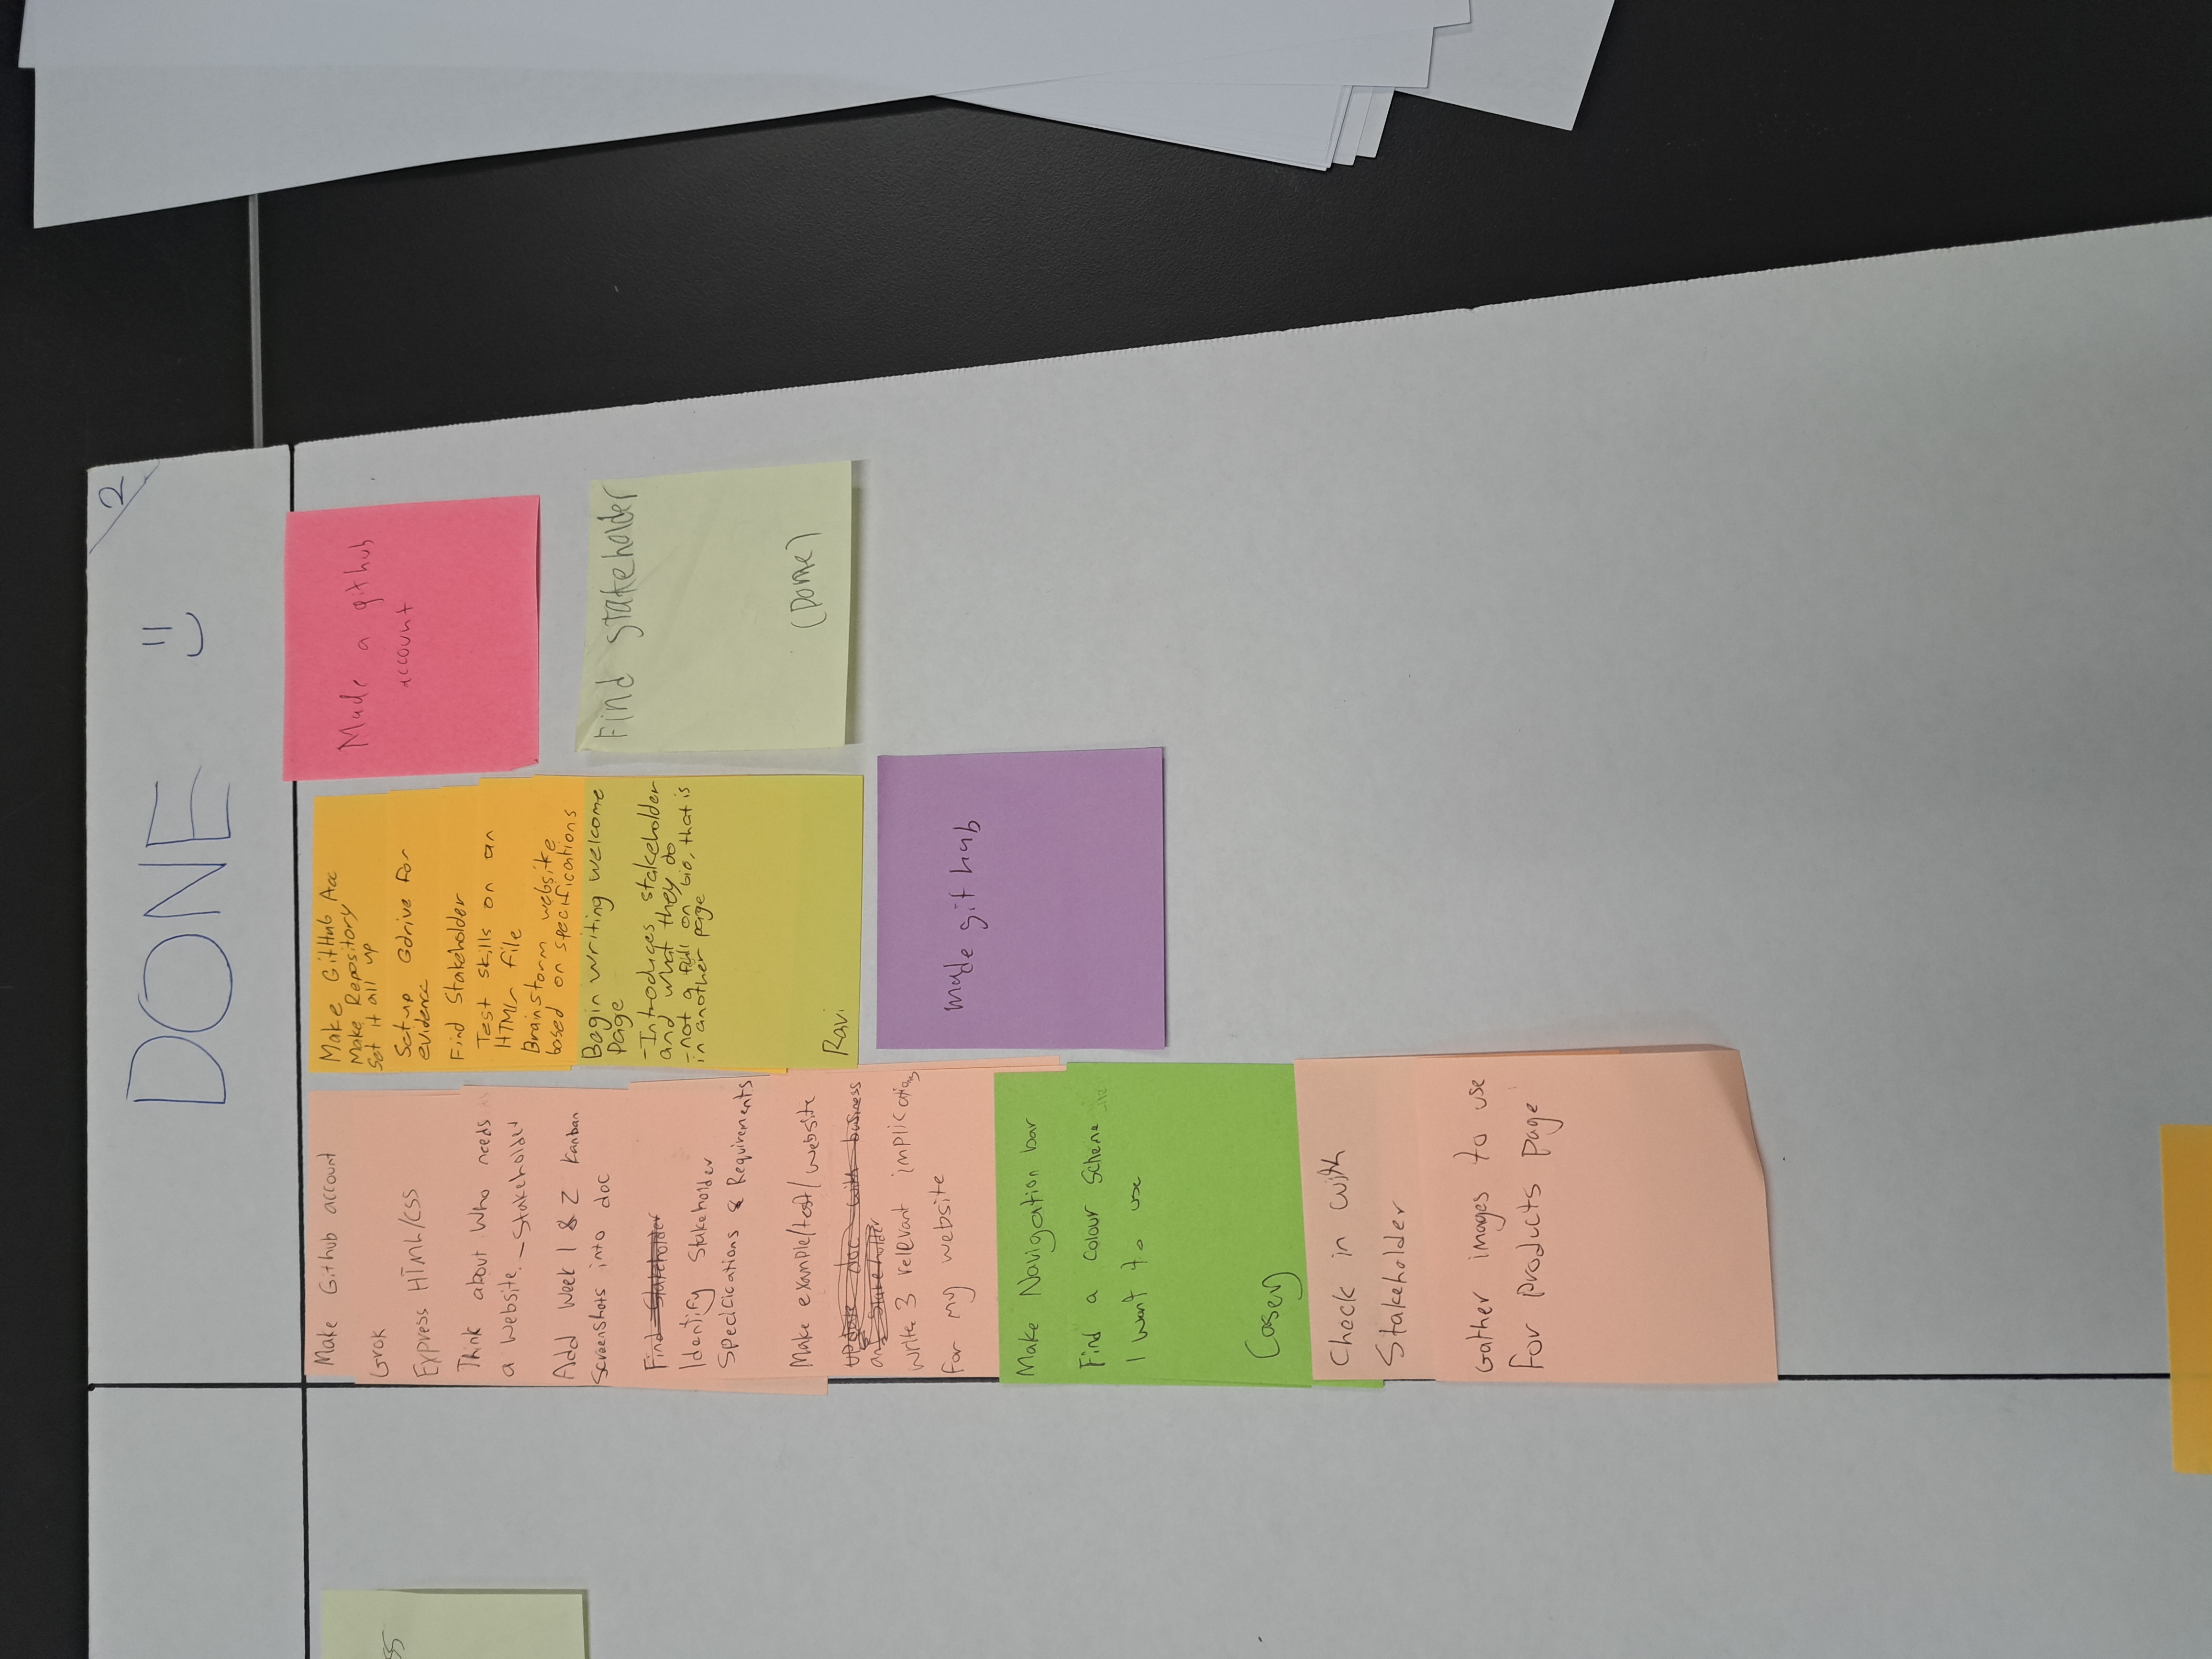 DONE
2
Make Github account
Grok
Express HTML/CSS
Think about who needs
a website. - Stakeholder
Add Week 1 & 2 Kanban
Screenshots into doc
Find Stakeholder
Identify Stakeholder
Specicications & Requirements
Make example/test/website
update doc with business
and Stakeholder
write 3 relevant implications
for my website
Make Navigation bar
Find a colour scheme
I want to use
Casey
Check in with
Stakeholder
Gather images to use
for products page
Make GitHub Acc
Make Repository
Set it all up
Setup Gdrive for
evidence
Find Stakeholder
Test skills on an
HTML file
Brainstorm website
based on specifications
Begin writing welcome
page
-Introduces stakeholder
and what they do
-not a full on bio, that is
in another page
Ravi
made git hub
Made a github
account
Find stakeholder
(Done)